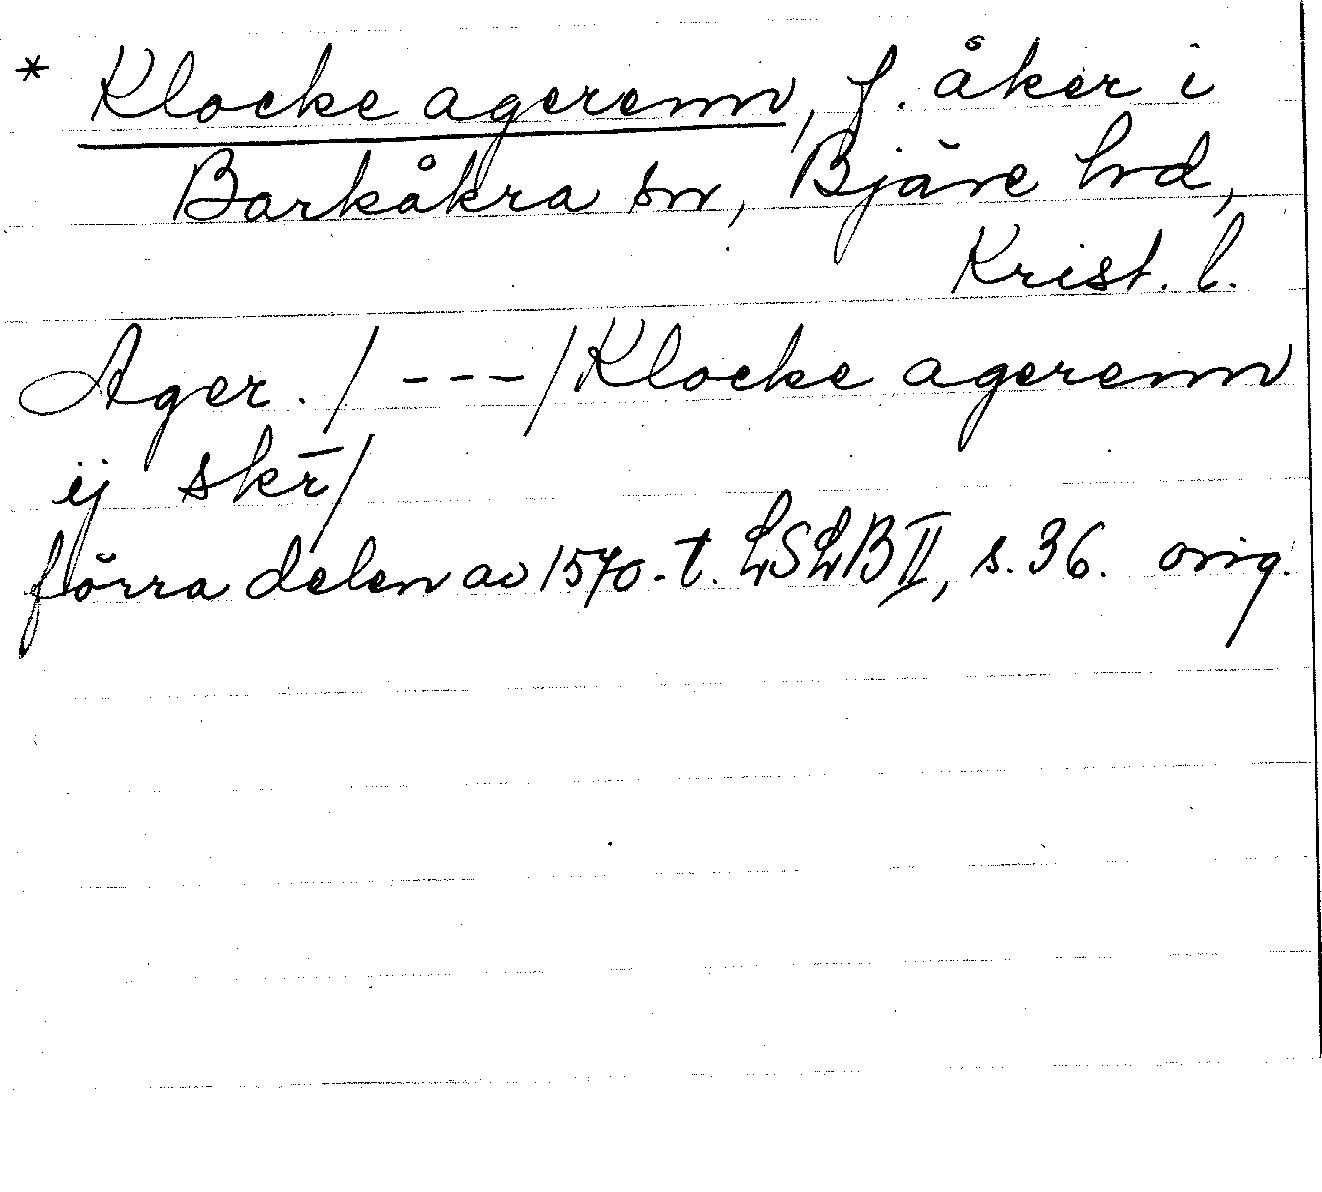 * Klocke agerenn, f. åker i
Barkåkra sn, Bjäre hd,
Krist. l.
Ager. / --- / Klocke agerenn
ij skr̄ /
förra delen av 1570-t. LSLB II, s. 36. orig.